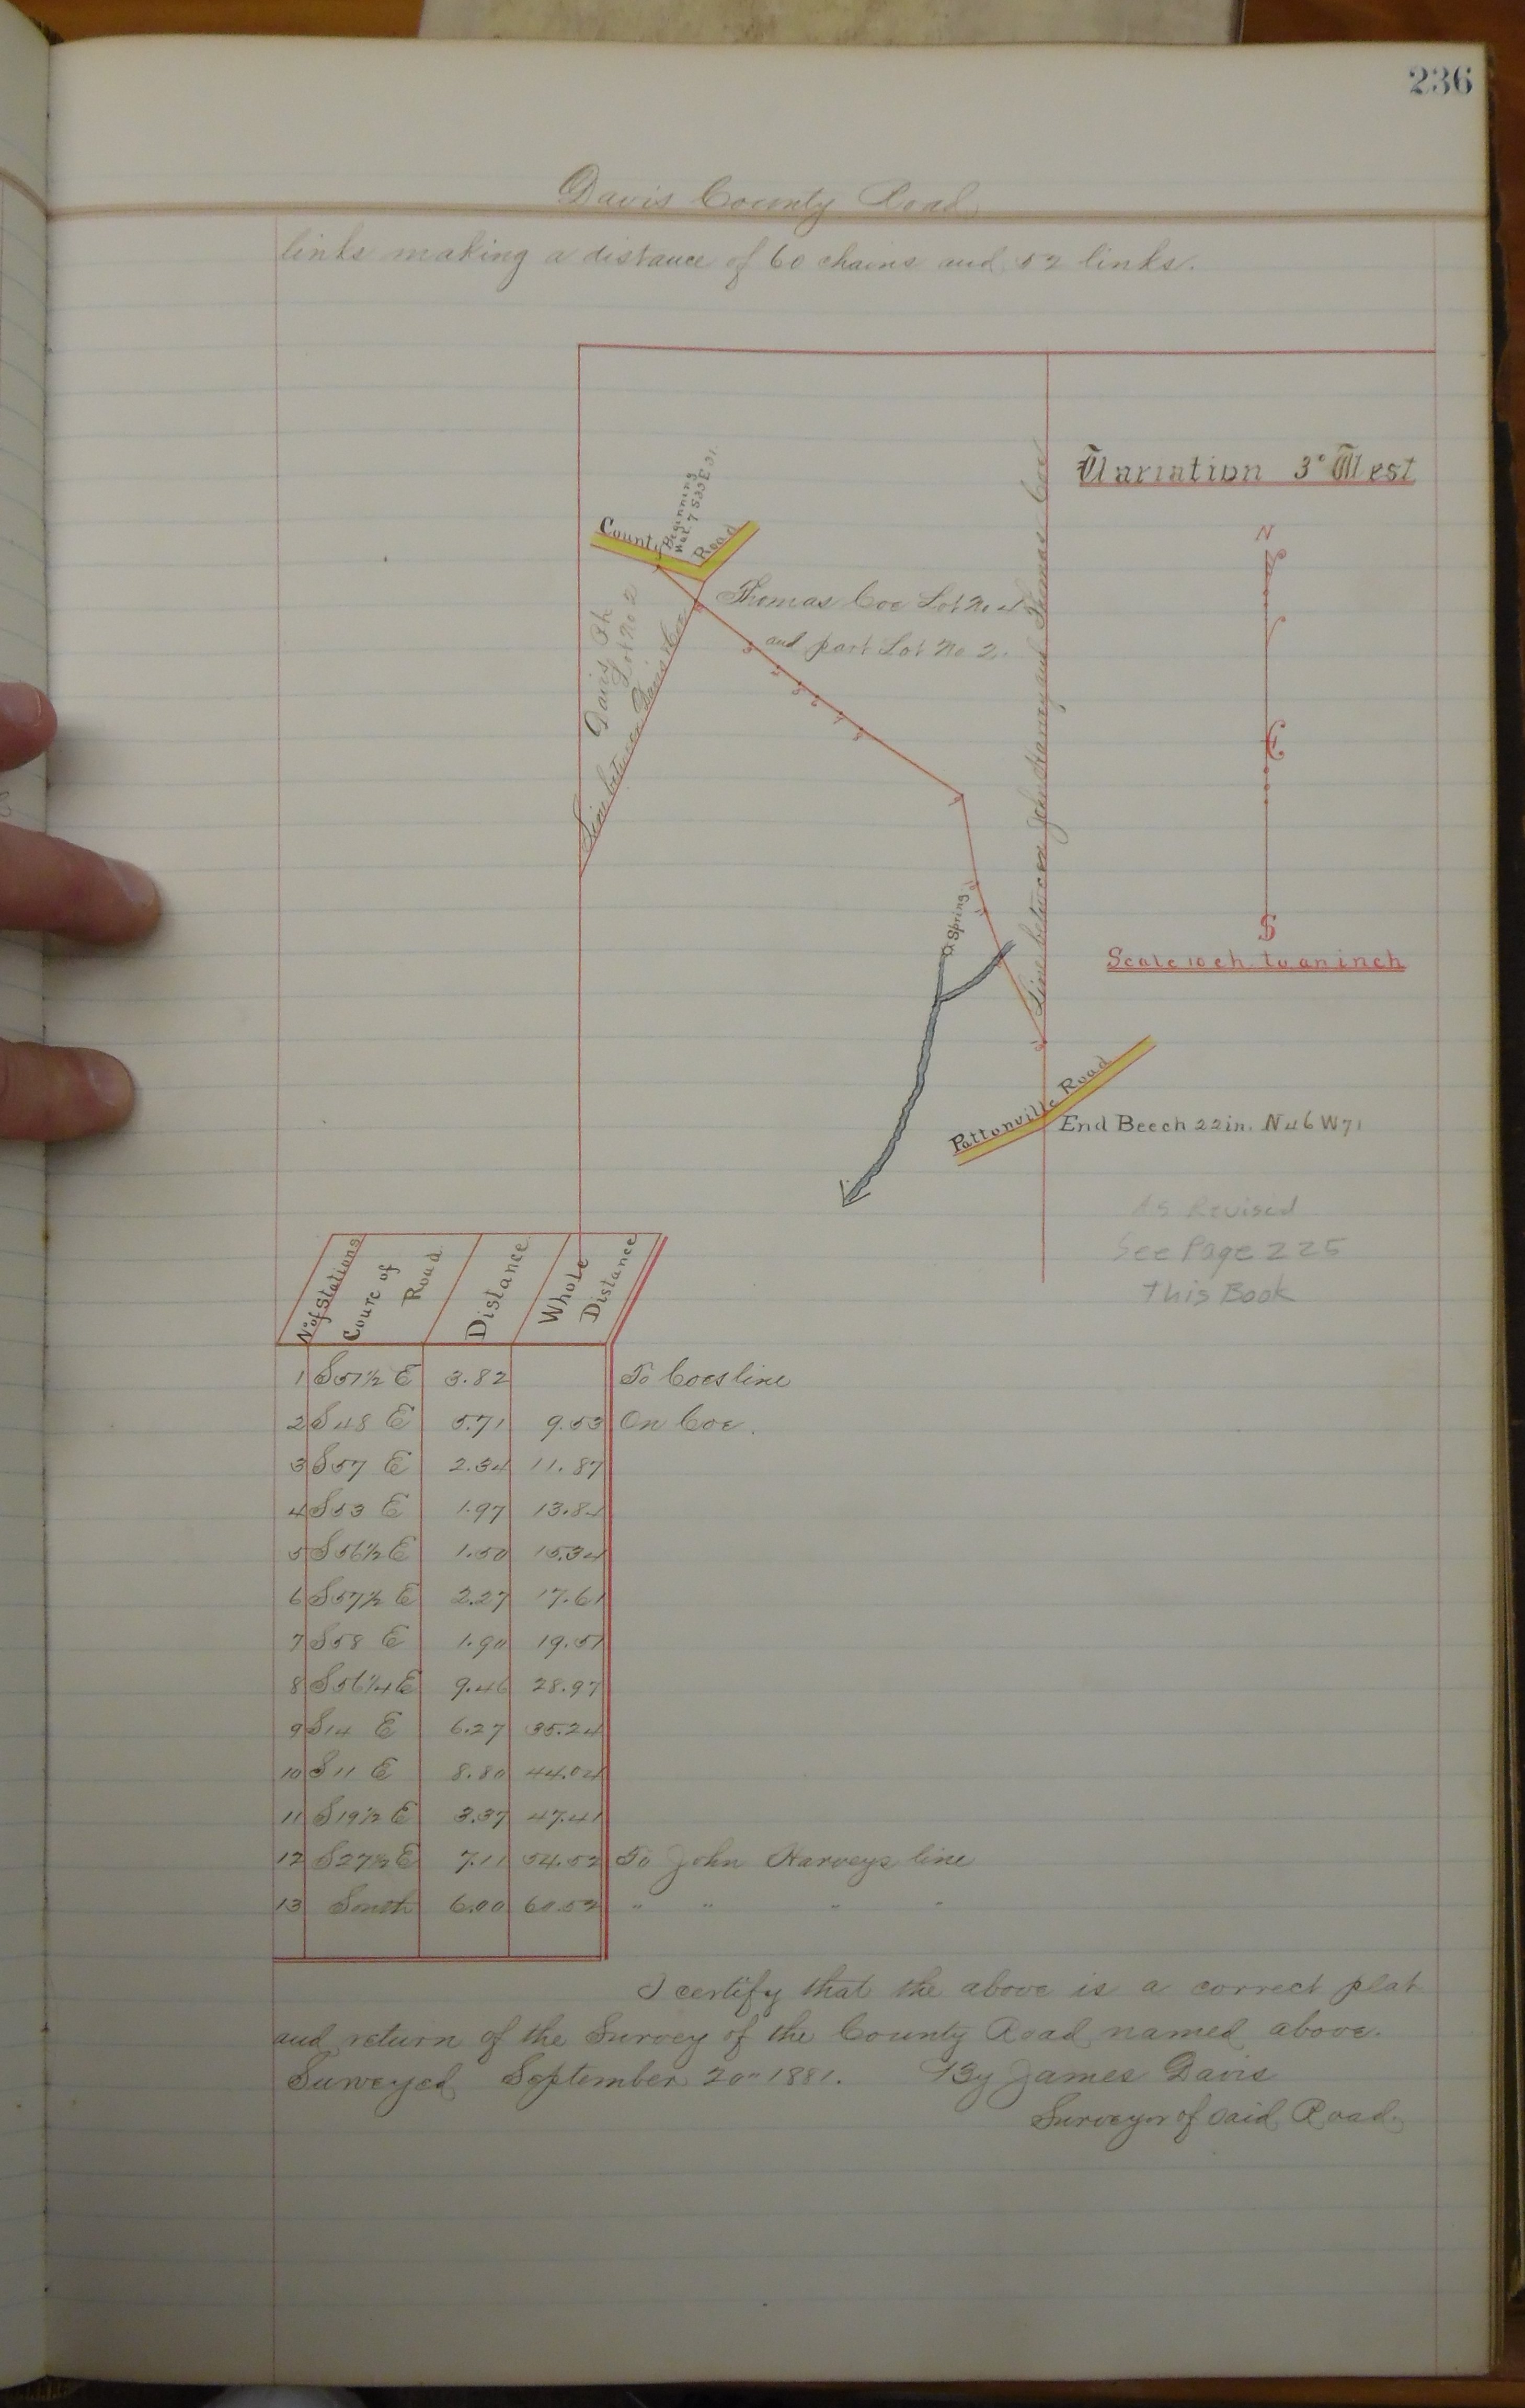 236
Davis County Road
links making a distance of 60 chains and 52 links.
Variation 3° West
N
S
Scale 10 ch. to an inch
Beginning
Wal. 7 S33E 31
County Road
Davis Ph
Lot No 2
Line between Davis & Coe
Thomas Coe Lot No 1
and part Lot No 2.
Line between John Harvey and Thomas Coe
Spring
Pattonville Road
End Beech 22 in. N46W71
As Revised
See Page 225
This Book
No of Stations Cource of Road Distance Whole Distance
1 S51½ E 3.82 To Coes line
2 S48 E 5.71 9.53 On Coe.
3 S57 E 2.34 11.87
4 S53 E 1.97 13.84
5 S56½ E 1.50 15.34
6 S57½ E 2.27 17.61
7 S58 E 1.90 19.51
8 S56¼ E 9.46 28.97
9 S14 E 6.27 35.24
10 S11 E 8.80 44.04
11 S19½ E 3.37 47.41
12 S27½ E 7.11 54.52 To John Harveys line
13 South 6.00 60.52 " " " "
I certify that the above is a correct plat
and return of the Survey of the County Road named above.
Surveyed September 20" 1881. By James Davis
Surveyor of said Road.